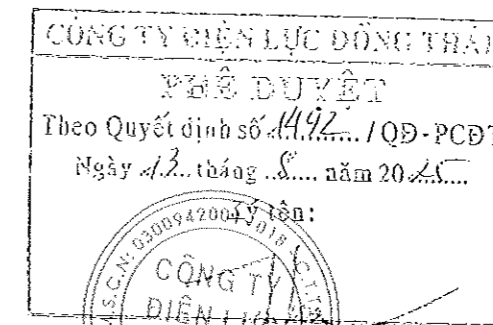 CÔNG TY ĐIỆN LỰC ĐỒNG THÁP
PHÊ DUYỆT
Theo Quyết định số 1492 / QĐ - PCĐT
Ngày 13 tháng 8 năm 20
Ký tên:
CÔNG TY
ĐIỆN LỰC